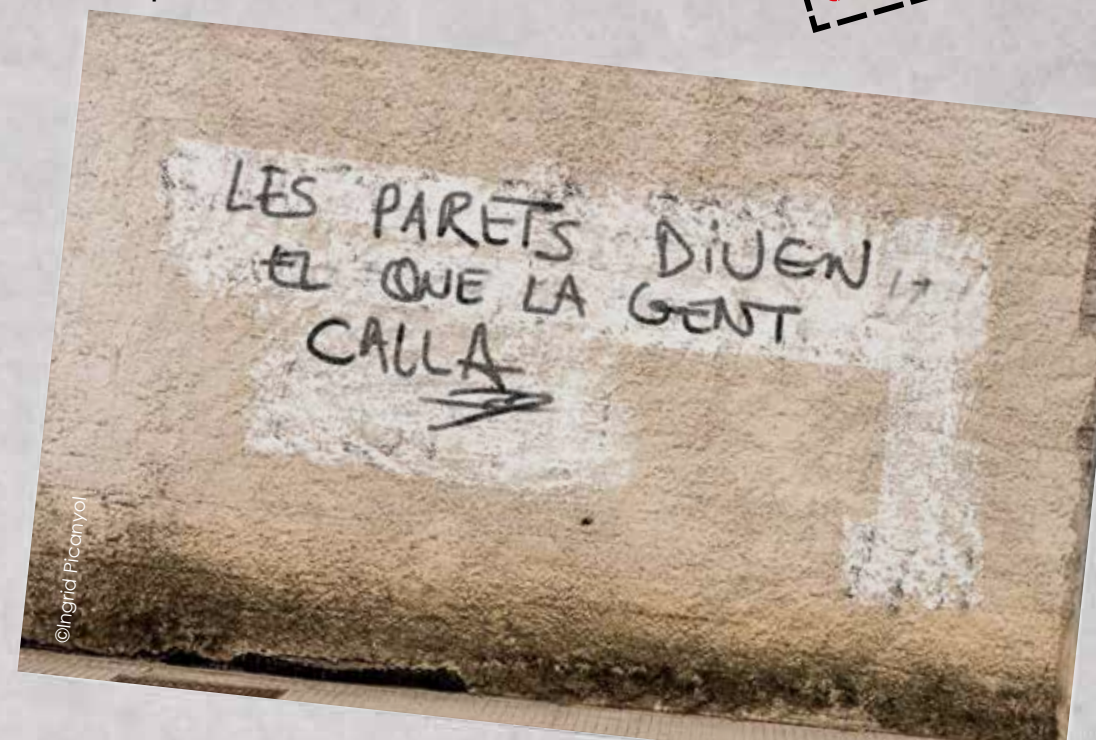 LES PARETS DiUEN
EL QUE LA GENT
CALLA
©Ingrid Picanyol